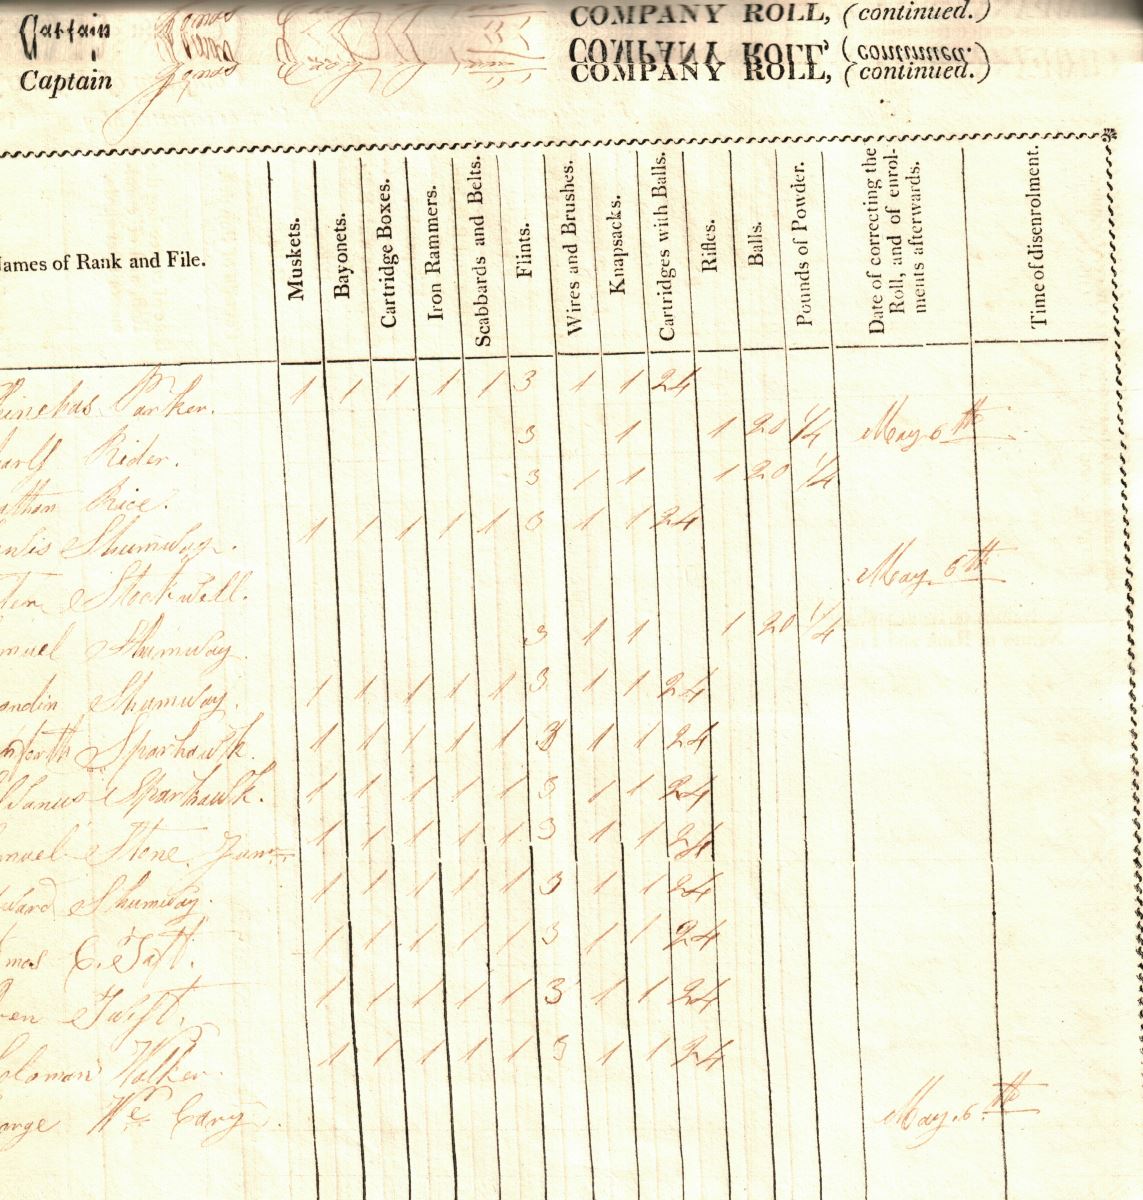 COMPANY ROLL, (continued.)
Captain
COMPANY ROLL, (continued.)
Captain
COMPANY ROLL, (continued.)
ames of Rank and File.
Muskets.
Bayonets.
Cartridge Boxes.
Iron Rammers.
Scabbards and Belts.
Flints.
Wires and Brushes.
Knapsacks.
Cartridges with Balls.
Rifles.
Balls.
Pounds of Powder.
Date of correcting the
Roll, and of enrol-
ments afterwards.
Time of disenrolment.
hinehas Parker. 1 1 1 1 1 3 1 1 24
Rider. 3 1 1 20 1/4 May 6th
athan Rice. 3 1 1 1 20 1/4
Shumway. 1 1 1 1 1 3 1 1 24
Stockwell. May 6th
muel Shumway. 3 1 1 1 20 1/4
Shumway. 1 1 1 1 1 3 1 1 24
nforth Sparhawk. 1 1 1 1 1 3 1 1 24
Sparhawk. 1 1 1 1 1 3 1 1 24
muel Stone Junr 1 1 1 1 1 3 1 1 24
ward Shumway. 1 1 1 1 1 3 1 1 24
mos C. Taft. 1 1 1 1 1 3 1 1 24
en Taft. 1 1 1 1 1 3 1 1 24
olomon Walker. 1 1 1 1 1 3 1 1 24
orge Wm Cary. May 6th